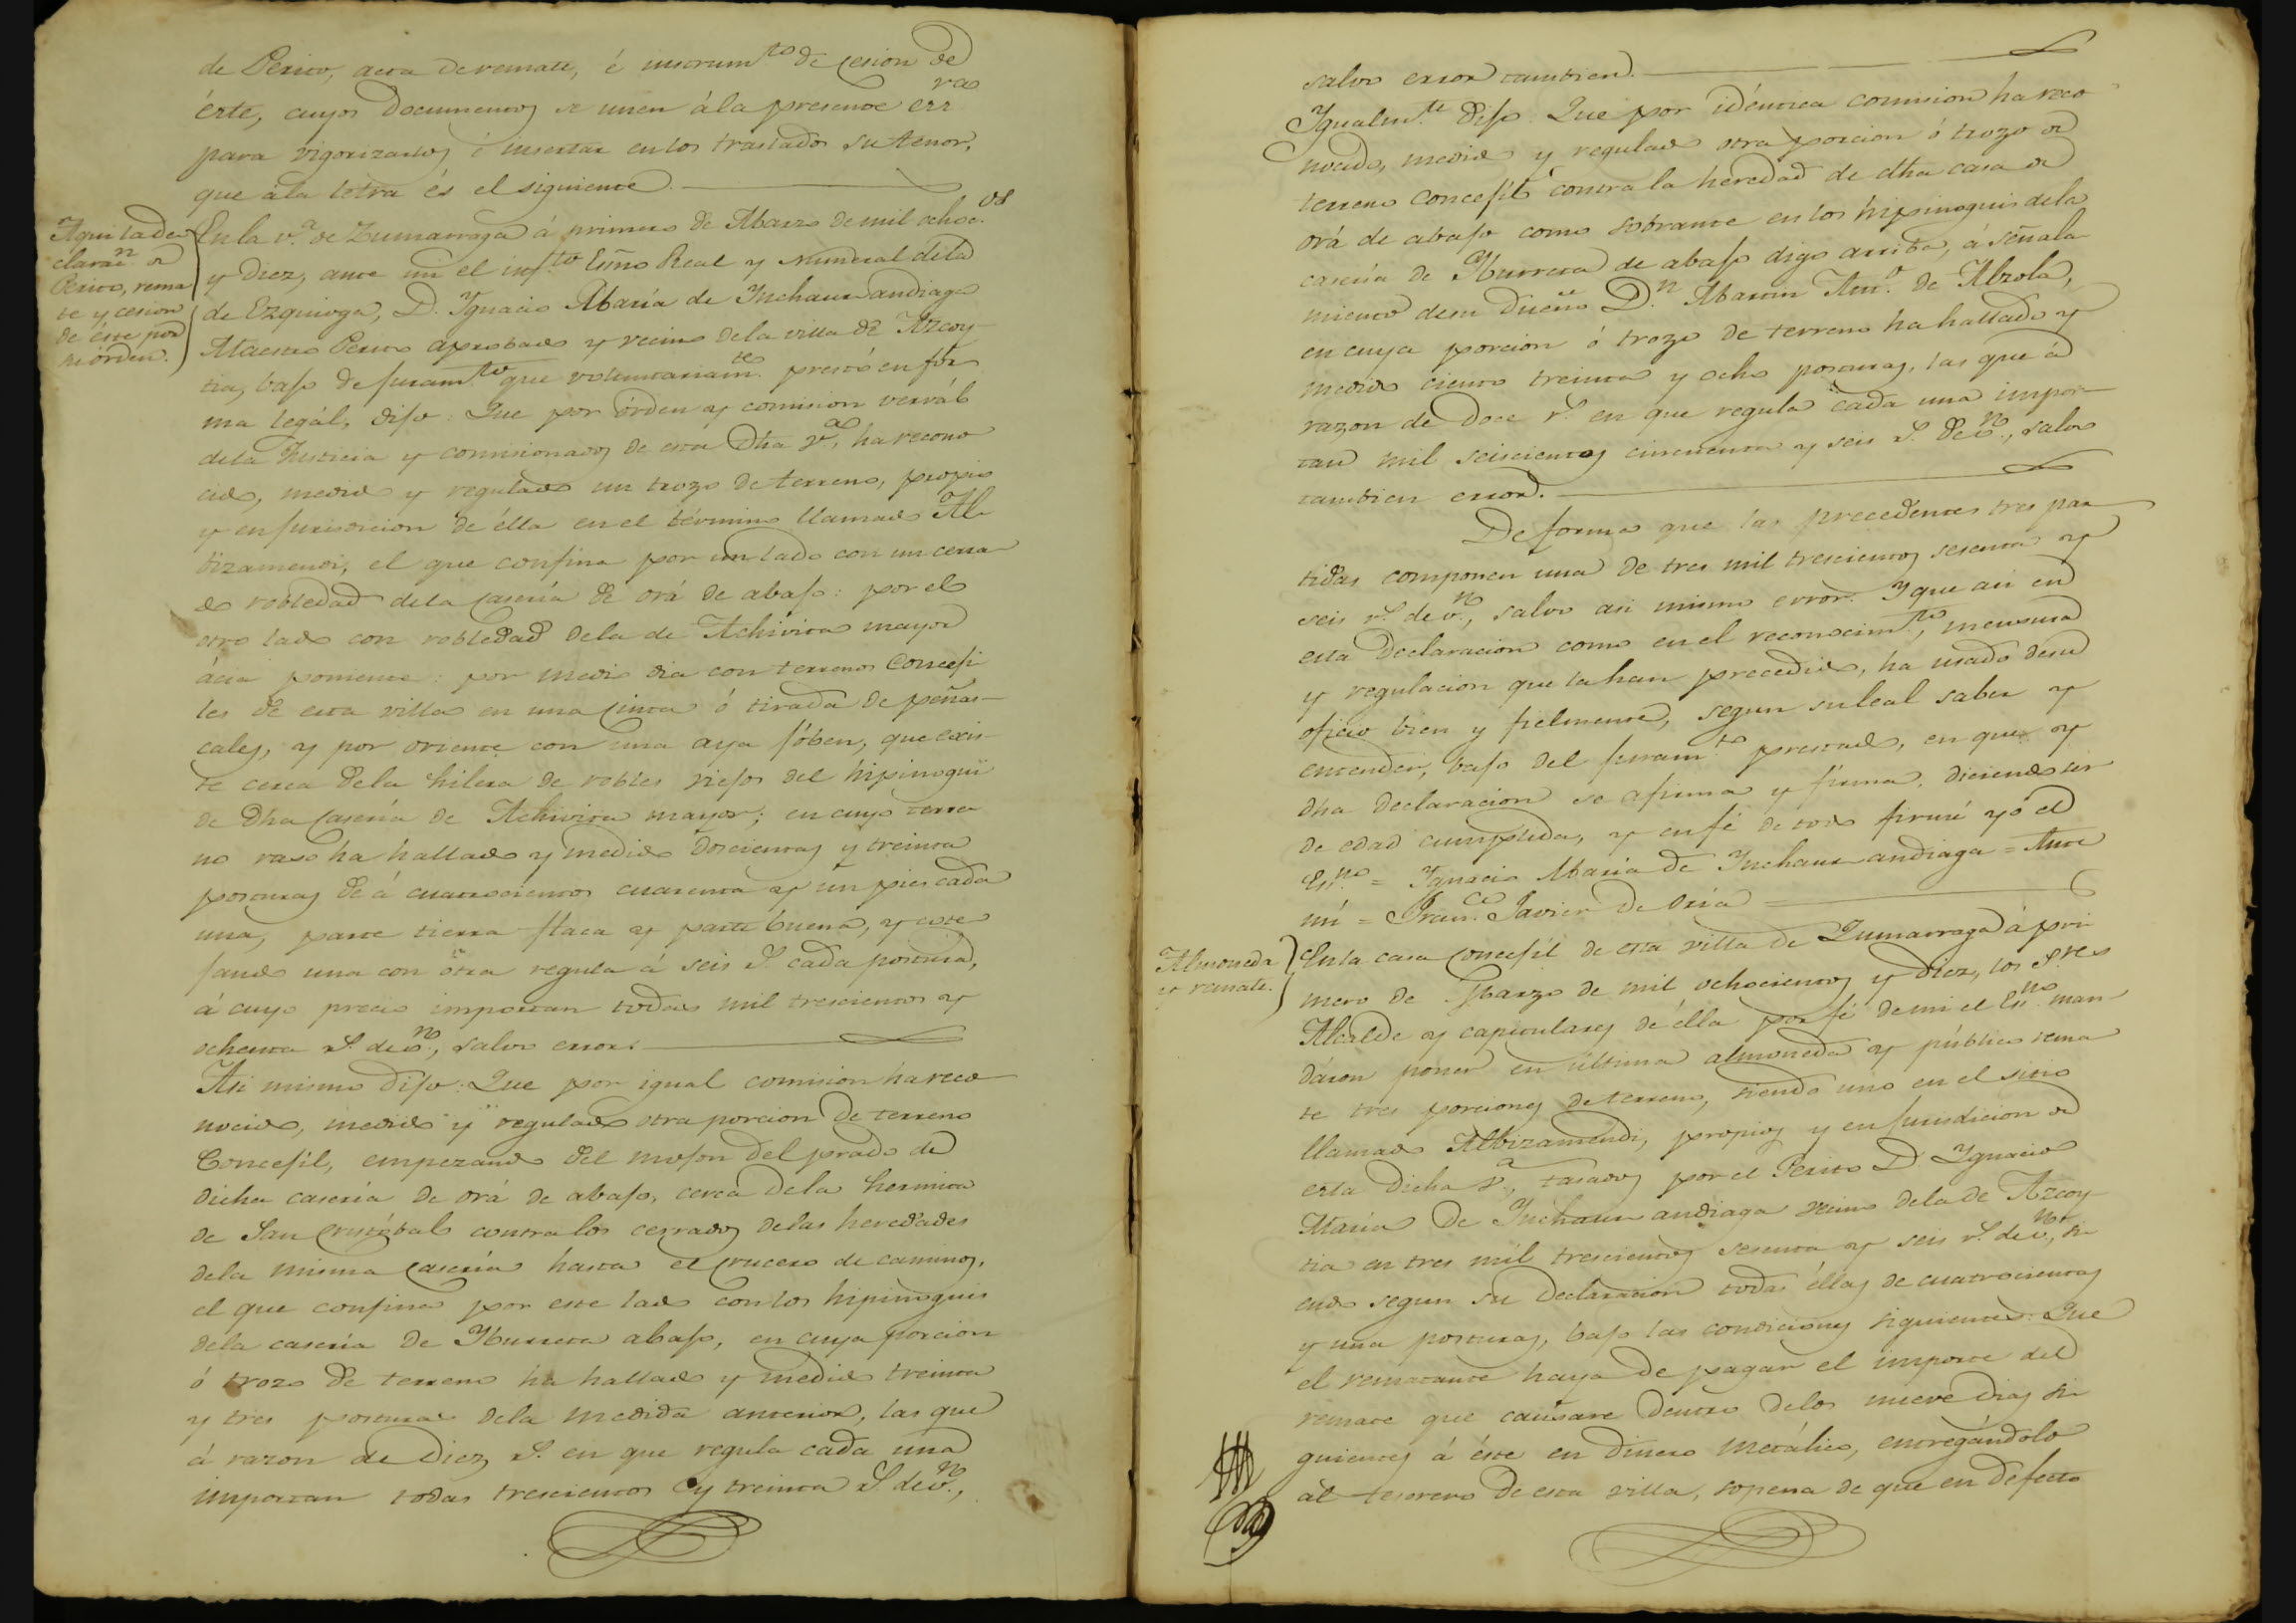 de Perito, acta de remate, é instrum.to de cesion de
éste, cuyos documentos se unen á la presente esz.ra
para vigorizarlos é insertar en los traslados su tenor,
que á la letra és el siguiente.
Aqui la de
claraz.n de
Perito, rema
te y cesion
de éste por
su órden.
En la v.a de Zumarraga á primero de Marzo de mil ochoc.os
y diez, ante mi el inf.to Essno Real y Numeral de la
de Ezquioga, D. Ygnacio María de Ynchaurrandiaga
Maestro Perito aprobado y vecino de la villa de Azcoy-
tia, bajo de juram.to que voluntariam.te prestó en for
ma legál, dijo: Que por órden y comision verbál
de la Justicia y comisionados de esta Dha v.a, ha recono
cido, medido y regulado un trozo de terreno, propio
y en jurisdicion de élla en el término llamado Al
bizamendi, el que confina por un lado con un cerra
do robledad de la Casería de orá de abajo: por el
otro lado con robledad de la de Achivita mayor
ácia poniente: por medio dia con terrenos Conceji
les de esta villa en una Cinta ó tirada de peñas-
cales, y por oriente con una aya jóben, que exis-
te cerca de la hilera de robles viejos del hipinogui
de Dha Casería de Achivita mayor; en cuyo terre
no raso ha hallado y medido doscientas y treinta
posturas de á cuatrocientos cuarenta y un pies cada
una, parte tierra flaca y parte buena, y cote
jando una con otra regula á seis r.s cada postura,
á cuyo precio importan todas mil trescientos y
ochenta r.s de v.n, salvo error.
Asi mismo dijo: Que por igual comision ha reco
nocido, medido y regulado otra porcion de terreno
Concejíl, empezando del mojon del prado de
dicha casería de orá de abajo, cerca de la hermita
de San Cristóbal contra los cerrados de las heredades
de la misma Casería hasta el crucero de caminos,
el que confina por este lado con los hipinoguis
de la casería de Yburreta abajo, en cuya porcion
ó trozo de terreno ha hallado y medido treinta
y tres posturas de la medida anterior, las que
á razon de diez r.s en que regula cada una
importan todas trescientos y treinta r.s de v.n,
salvo error tambien.
Ygualm.te dijo: Que por idéntica comision ha reco
nocido, medido y regulado otra porcion ó trozo de
terreno concejíl contra la heredad de dha casa de
orá de abajo como sobrante en los hipinoguis de la
casería de Yburreta de abajo digo arriba, á señala
miento de su dueño D.n Martin Ant.o de Alzola,
en cuya porcion ó trozo de terreno ha hallado y
medido ciento treinta y ocho posturas, las que á
razon de doce r.s en que regula cada una impor-
tan mil seiscientos cincuenta y seis r.s de v.n, salvo
tambien error.
De forma que las precedentes tres par
tidas componen una de tres mil trescientos sesenta y
seis r.s de v.n, salvo asi mismo error. Y que asi en
esta Declaracion como en el reconocim.to, mensura
y regulacion que la han precedido, ha usado de su
oficio bien y fielmente, segun su leal saber y
entender, bajo del juram.to prestado, en que y
dha declaracion se afirma y firma, diciendo ser
de edad cumplida, y en fé de todo firmé yo el
Es.no = Ygnacio María de Ynchaurrandiaga = Ante
mí = Fran.co Javier de Oria =
Almoneda
y remate.
En la casa Concejíl de esta villa de Zumarraga á pri
mero de Marzo de mil ochocientos y diez, los S.res
Alcalde y capitulares de élla por fé de mi el Es.no man
dáron poner en última almoneda y público rema
te tres porciones de terreno, siendo uno en el sitio
llamado Albizamendi, propios y en jurisdicion de
esta dicha v.a, tasados por el Perito D. Ygnacio
María de Ynchaurrandiaga vecino de la de Azcoy-
tia en tres mil trescientos sesenta y seis r.s de v.n, si
endo segun su declaracion todas éllas de cuatrocientas
y una posturas, bajo las condiciones siguientes: Que
el rematante haya de pagar el importe del
remate que causare dentro de los nueve dias si
guientes á éste en dinero metálico, entregándolo
al tesorero de esta villa, sopena de que en defecto